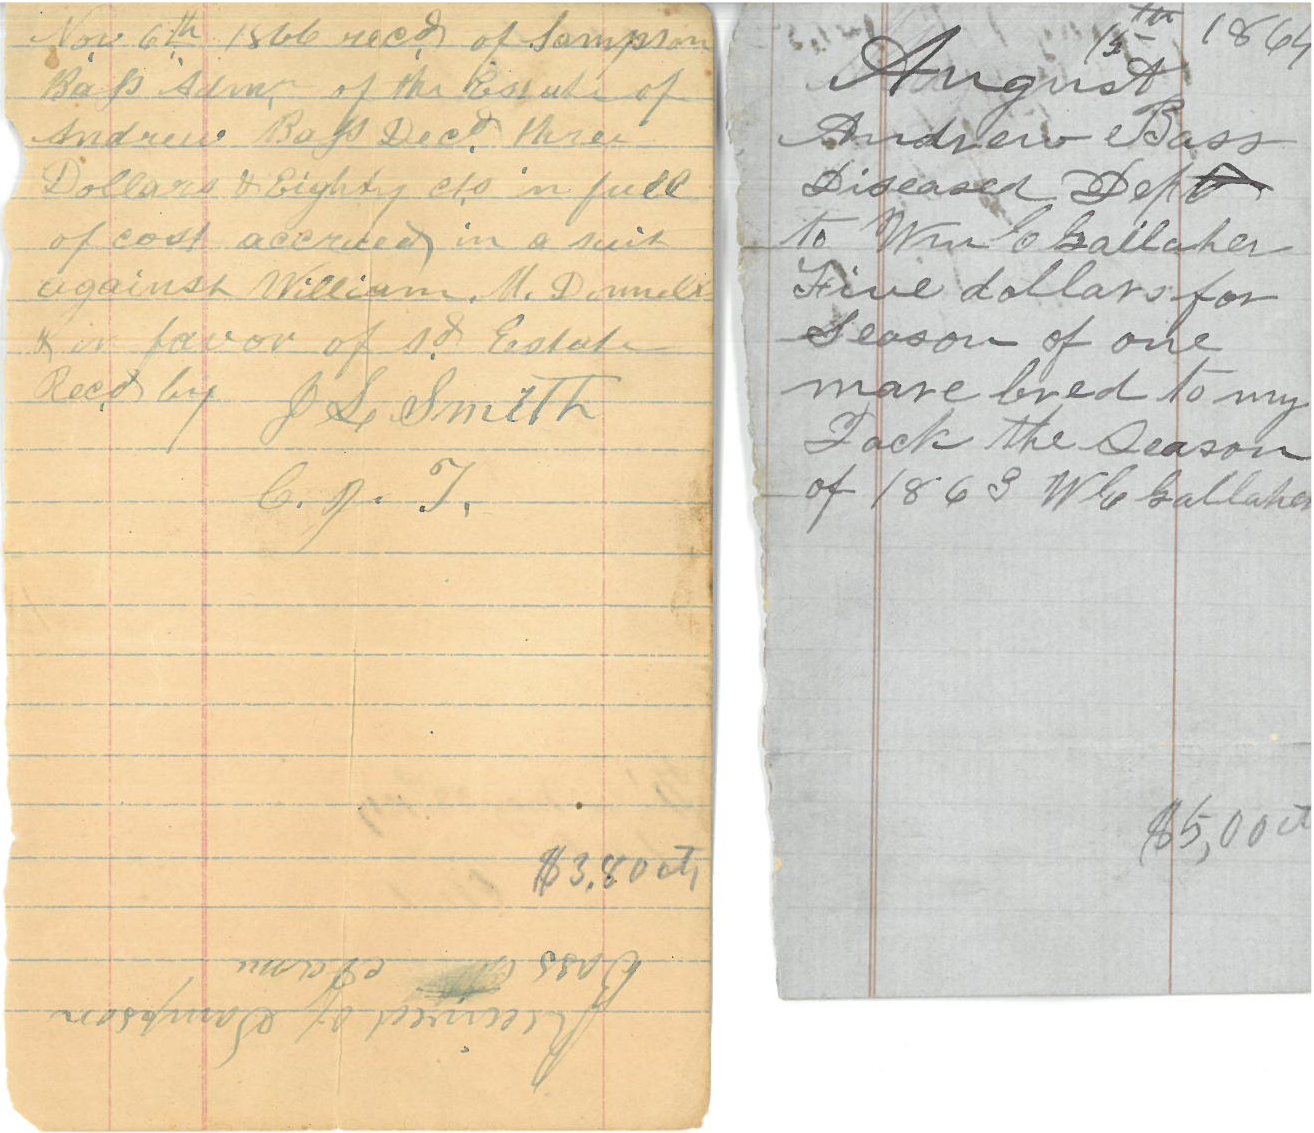 Nov 6th 1866 recd of Sampson
Bass Admr of the Estate of
Andrew Bass Decd three
Dollars & Eighty cts in full
of cost accrued in a suit
against William M. Donnels
& in favor of sd Estate
Recd by J L Smith
C. J. T.
$3.80 cts
Received of Sampson
Bass
August 15th 1864
Andrew Bass
Diseased Dept
to Wm C Gallaher
Five dollars for
Season of one
mare bred to my
Jack the Season
of 1863 W C Gallaher
$5,00 ct